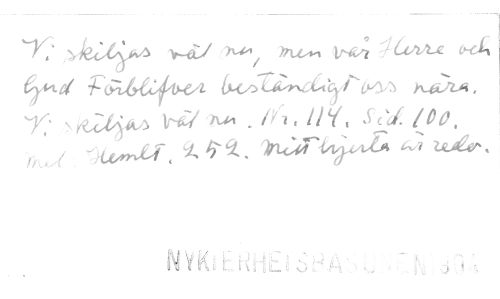 Vi skiljas väl nu, men vår Herre och
Gud Förblifver beständigt oss nära.
Vi skiljas väl nu. Nr. 114. Sid. 100.
mel. Hemlt. 252. Mitt hjerta är redo.
NYKTERHETSBASUNEN